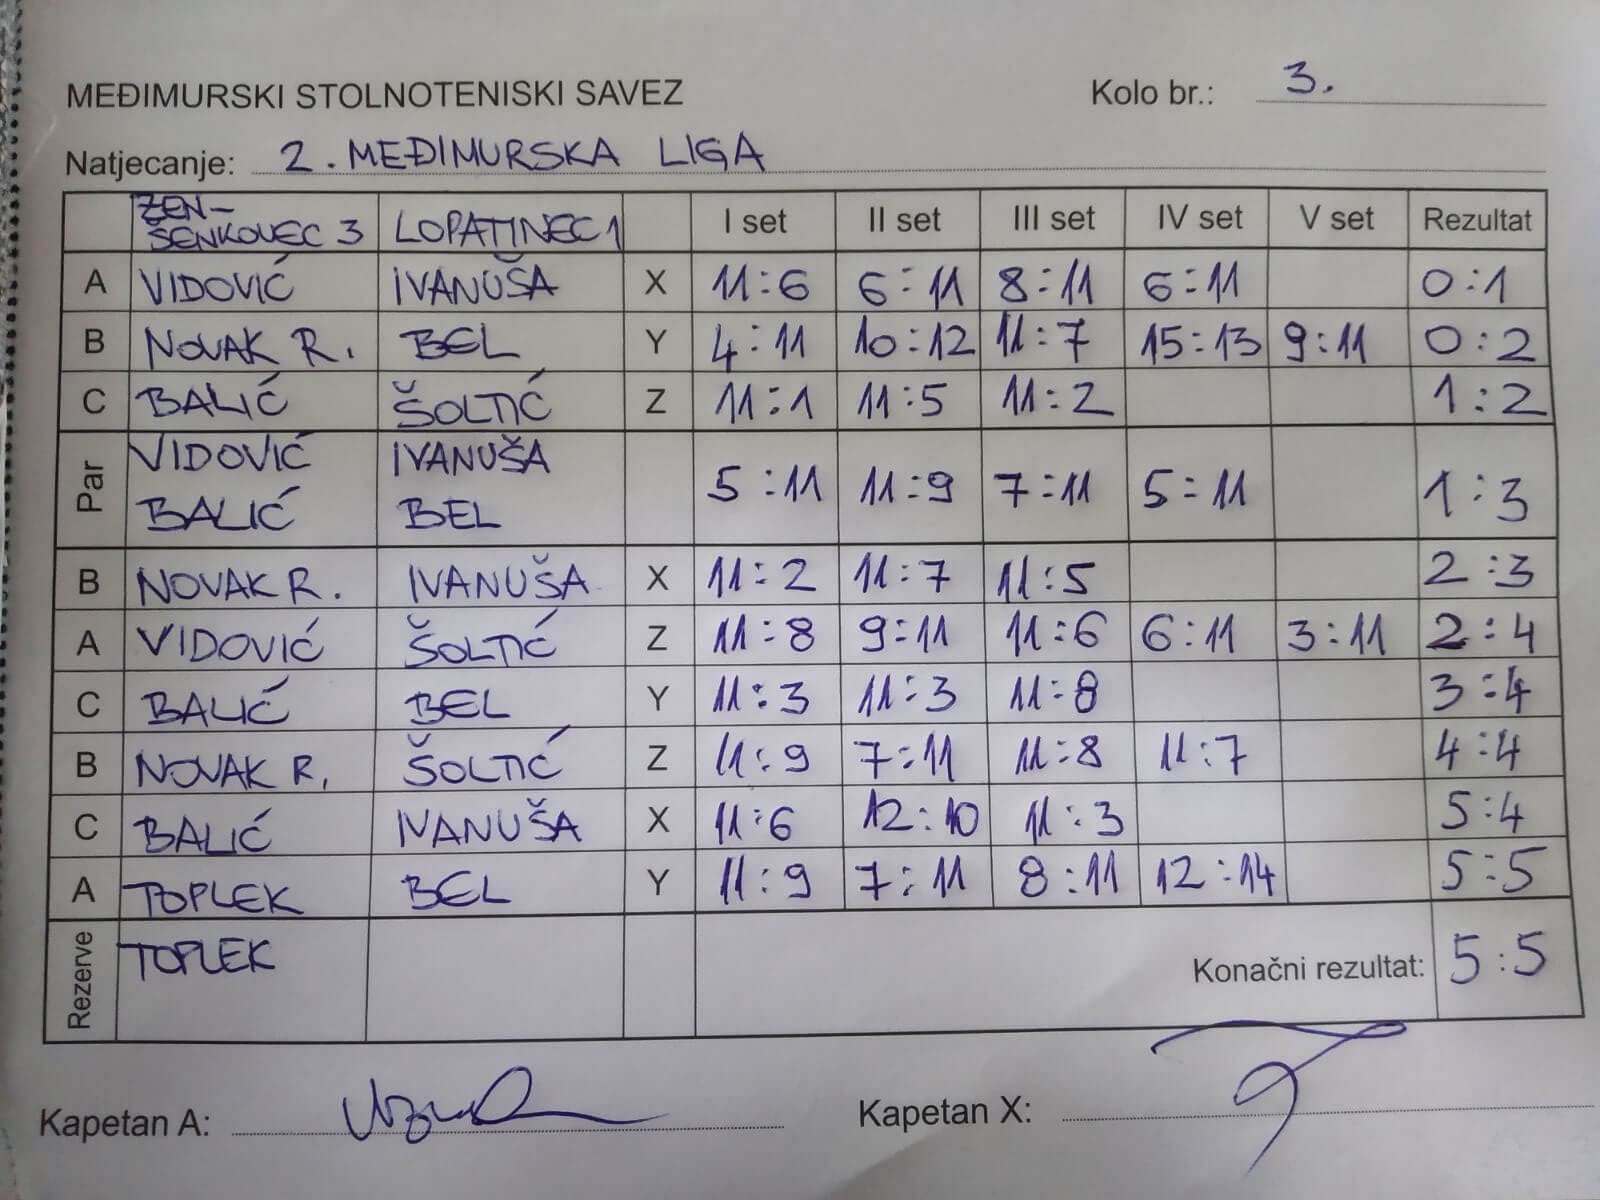 MEĐIMURSKI STOLNOTENISKI SAVEZ Kolo br.: 3.
Natjecanje: 2. MEĐIMURSKA LIGA
ŽEN-
ŠENKOVEC 3 LOPATINEC 1 I set II set III set IV set V set Rezultat
A VIDOVIĆ IVANUŠA X 11:6 6:11 8:11 6:11 0:1
B NOVAK R. BEL Y 4:11 10:12 11:7 15:13 9:11 0:2
C BALIĆ ŠOLTIĆ Z 11:1 11:5 11:2 1:2
Par VIDOVIĆ IVANUŠA 5:11 11:9 7:11 5:11 1:3
BALIĆ BEL
B NOVAK R. IVANUŠA X 11:2 11:7 11:5 2:3
A VIDOVIĆ ŠOLTIĆ Z 11:8 9:11 11:6 6:11 3:11 2:4
C BALIĆ BEL Y 11:3 11:3 11:8 3:4
B NOVAK R. ŠOLTIĆ Z 11:9 7:11 11:8 11:7 4:4
C BALIĆ IVANUŠA X 11:6 12:10 11:3 5:4
A TOPLEK BEL Y 11:9 7:11 8:11 12:14 5:5
Rezerve TOPLEK Konačni rezultat: 5:5
Kapetan A: Kapetan X: